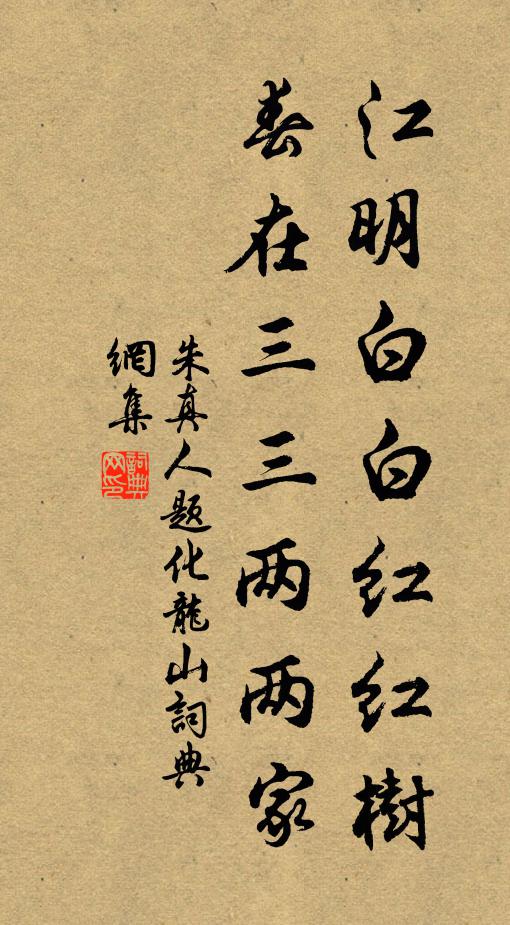 江明白白红红樹
春在三三两两家
朱真人题化龍山詞典
網集
詞典网印